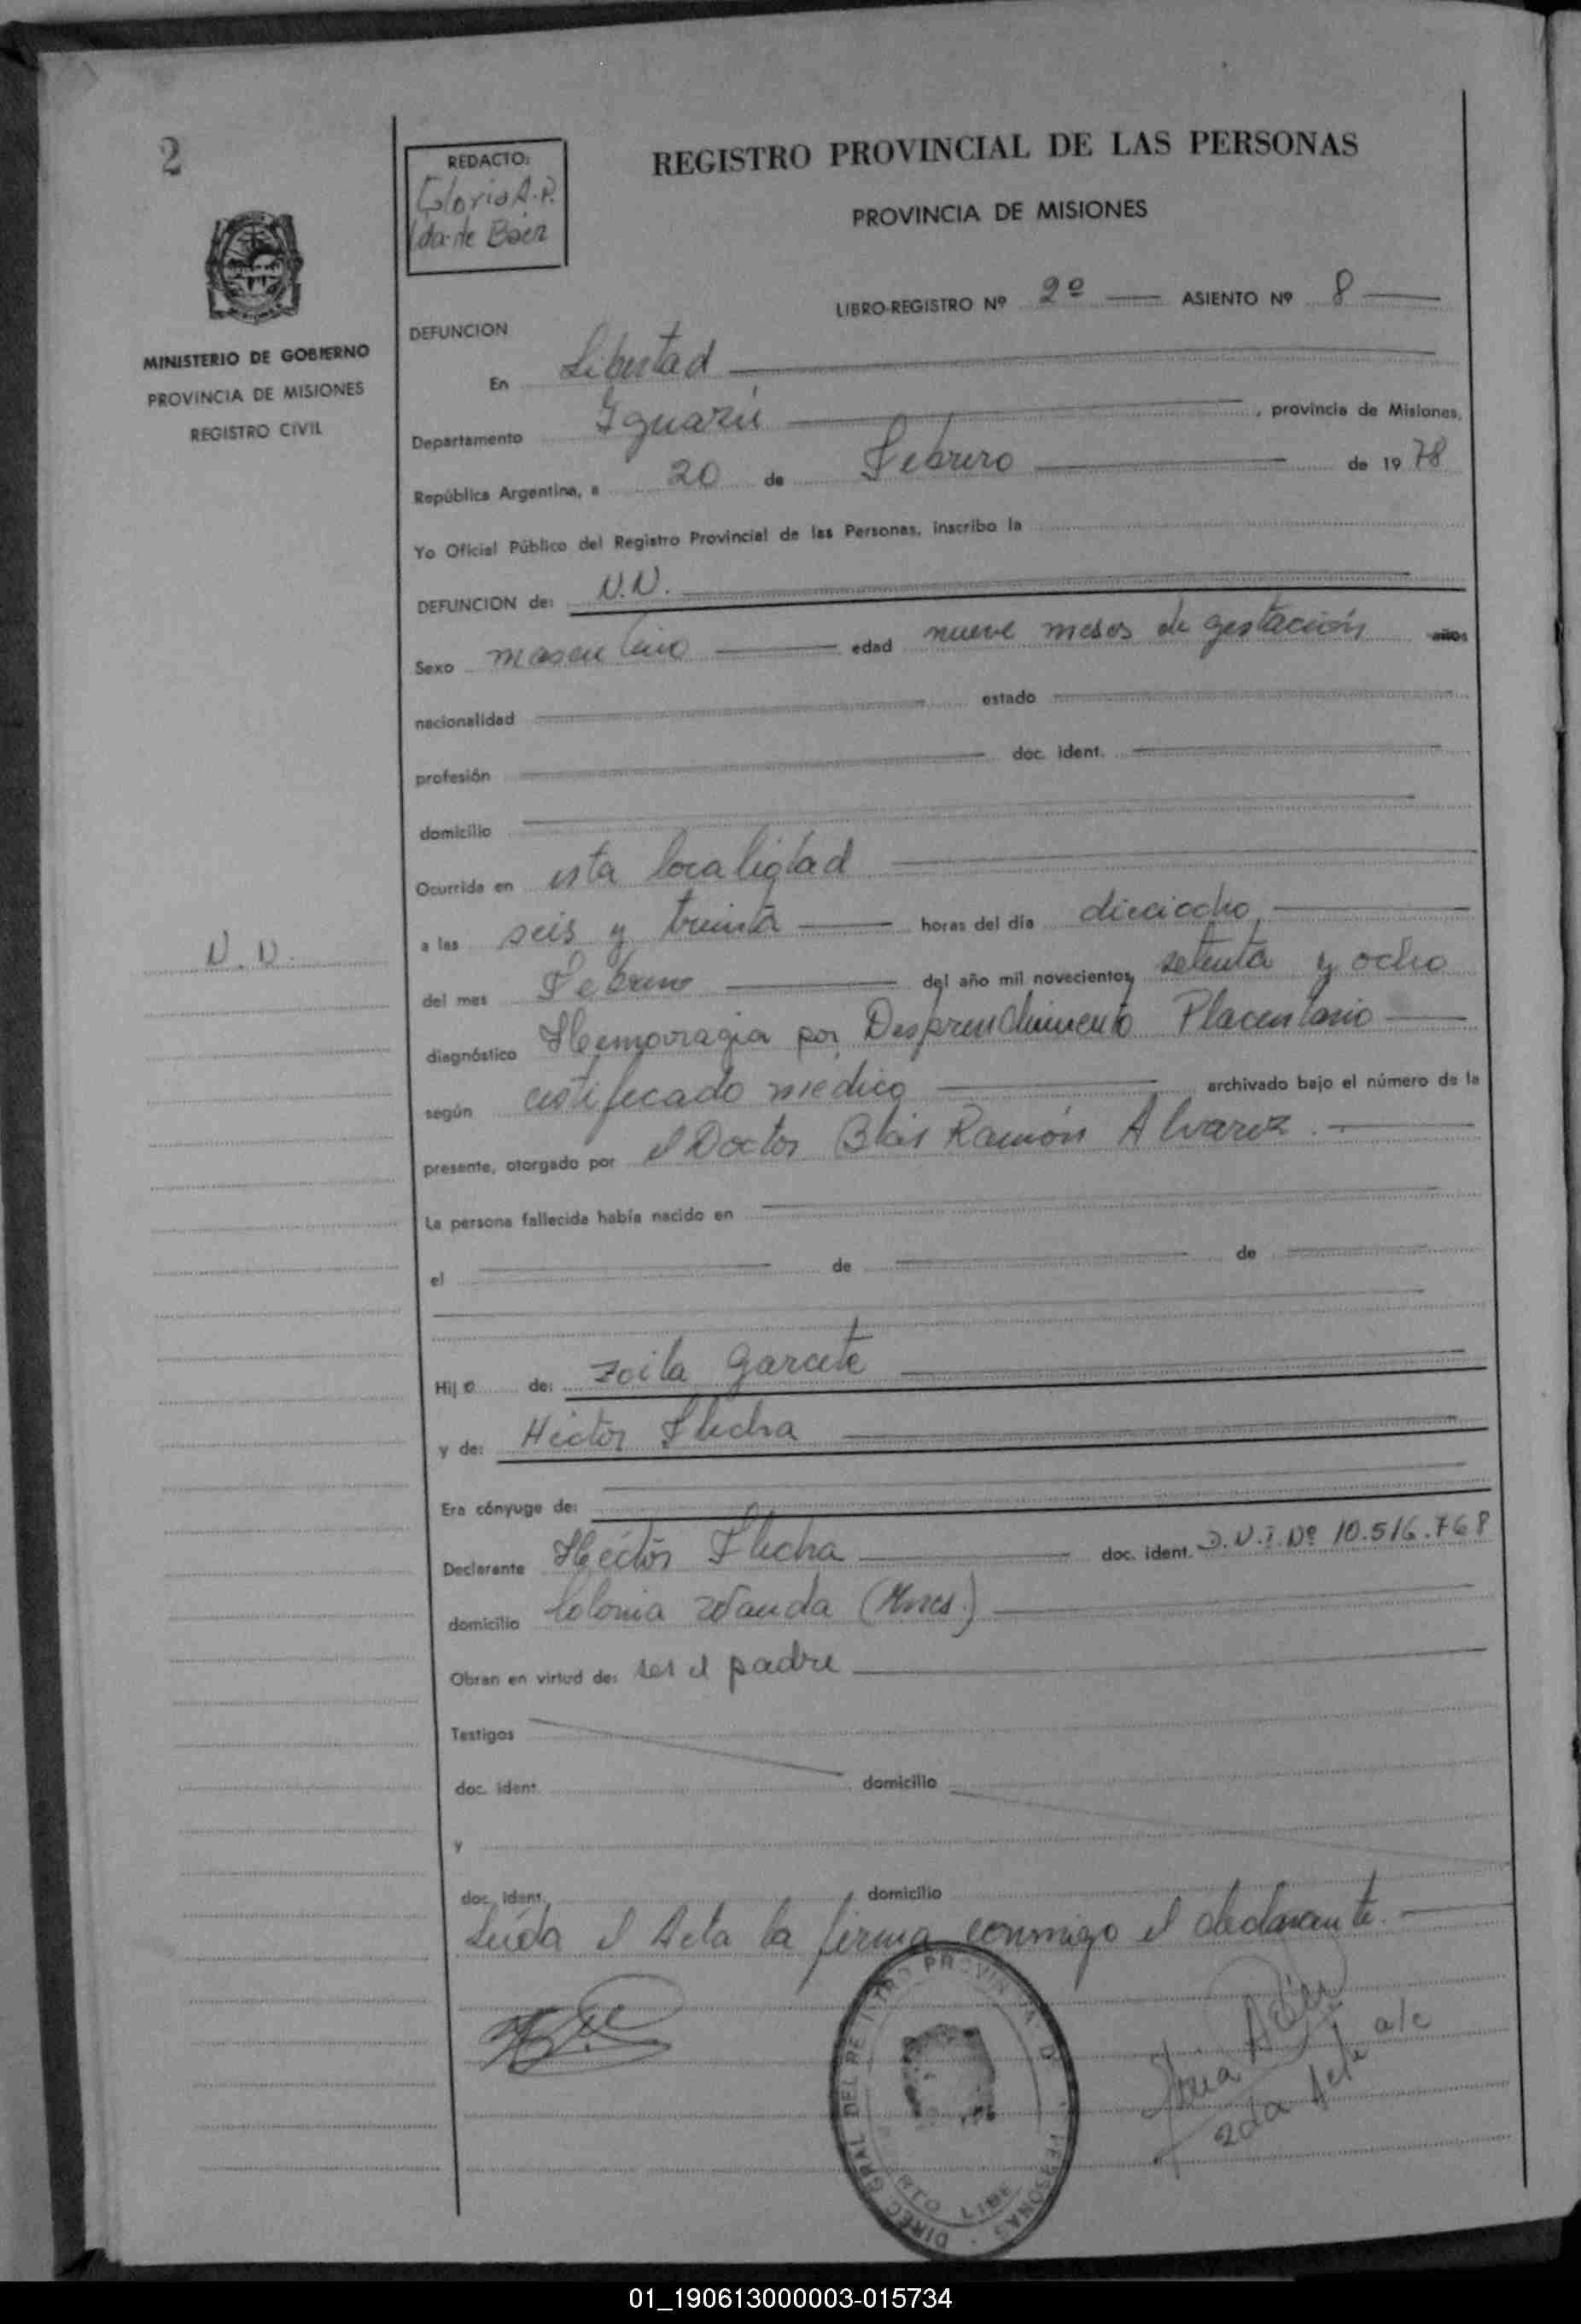 2
REDACTO:
Gloria A. R.
Vda. de Báez
REGISTRO PROVINCIAL DE LAS PERSONAS
PROVINCIA DE MISIONES
MINISTERIO DE GOBIERNO
PROVINCIA DE MISIONES
REGISTRO CIVIL
LIBRO-REGISTRO Nº 2º ASIENTO Nº 8
DEFUNCION
En Libertad
Departamento Iguazú, provincia de Misiones,
República Argentina, a 20 de Febrero de 1978
Yo Oficial Público del Registro Provincial de las Personas, inscribo la
DEFUNCION de: N.N.
Sexo masculino edad nueve meses de gestación años
nacionalidad estado
profesión doc. ident.
domicilio
Ocurrida en esta localidad
a las seis y treinta horas del día dieciocho,
N.N.
del mes Febrero del año mil novecientos setenta y ocho
diagnóstico Hemorragia por Desprendimiento Placentario
según certificado médico archivado bajo el número de la
presente, otorgado por el Doctor Blas Ramón Alvarez.
La persona fallecida había nacido en
el de de
Hijo de: Zoila Garcete
y de: Héctor Flecha
Era cónyuge de:
Declarante Héctor Flecha doc. ident. D.N.I. Nº 10.516.768
domicilio Colonia Wanda (Mnes.)
Obran en virtud de: ser el padre
Testigos
doc. ident. domicilio
y
doc. ident. domicilio
Leída el Acta la firma conmigo el declarante.
DIREC GRAL DEL RE PROVIN PERSONAS
RTO LIBE
2da Jefe a/c
01_190613000003-015734